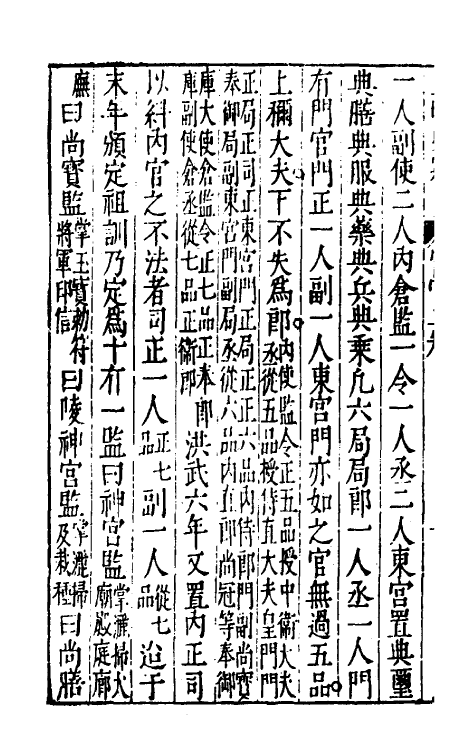 一人副使二人內倉監一令一人丞二人東宮置典璽
典膳典服典藥典兵典乘凡六局局郎一人丞一人門
有門官門正一人副一人東宮門亦如之官無過五品
上稱大夫下不失爲郎內使監令正五品授中衛大夫丞從五品授侍直大夫皇門門
正局正司正東宮門正局正正六品內侍郎門副尚寶奉御局副東宮門副局丞從六品內直郎尚冠等奉御
庫大使倉監令正七品正奉郎庫副使倉丞從七品正衛郎洪武六年又置內正司
以糾內官之不法者司正一人正七品副一人從七品迨于
末年頒定祖訓乃定爲十有一監曰神宮監掌灑掃太廟殿庭廊
廡曰尚寶監掌玉寶勅符將軍印信曰陵神宮監掌灑掃及栽種曰尚膳